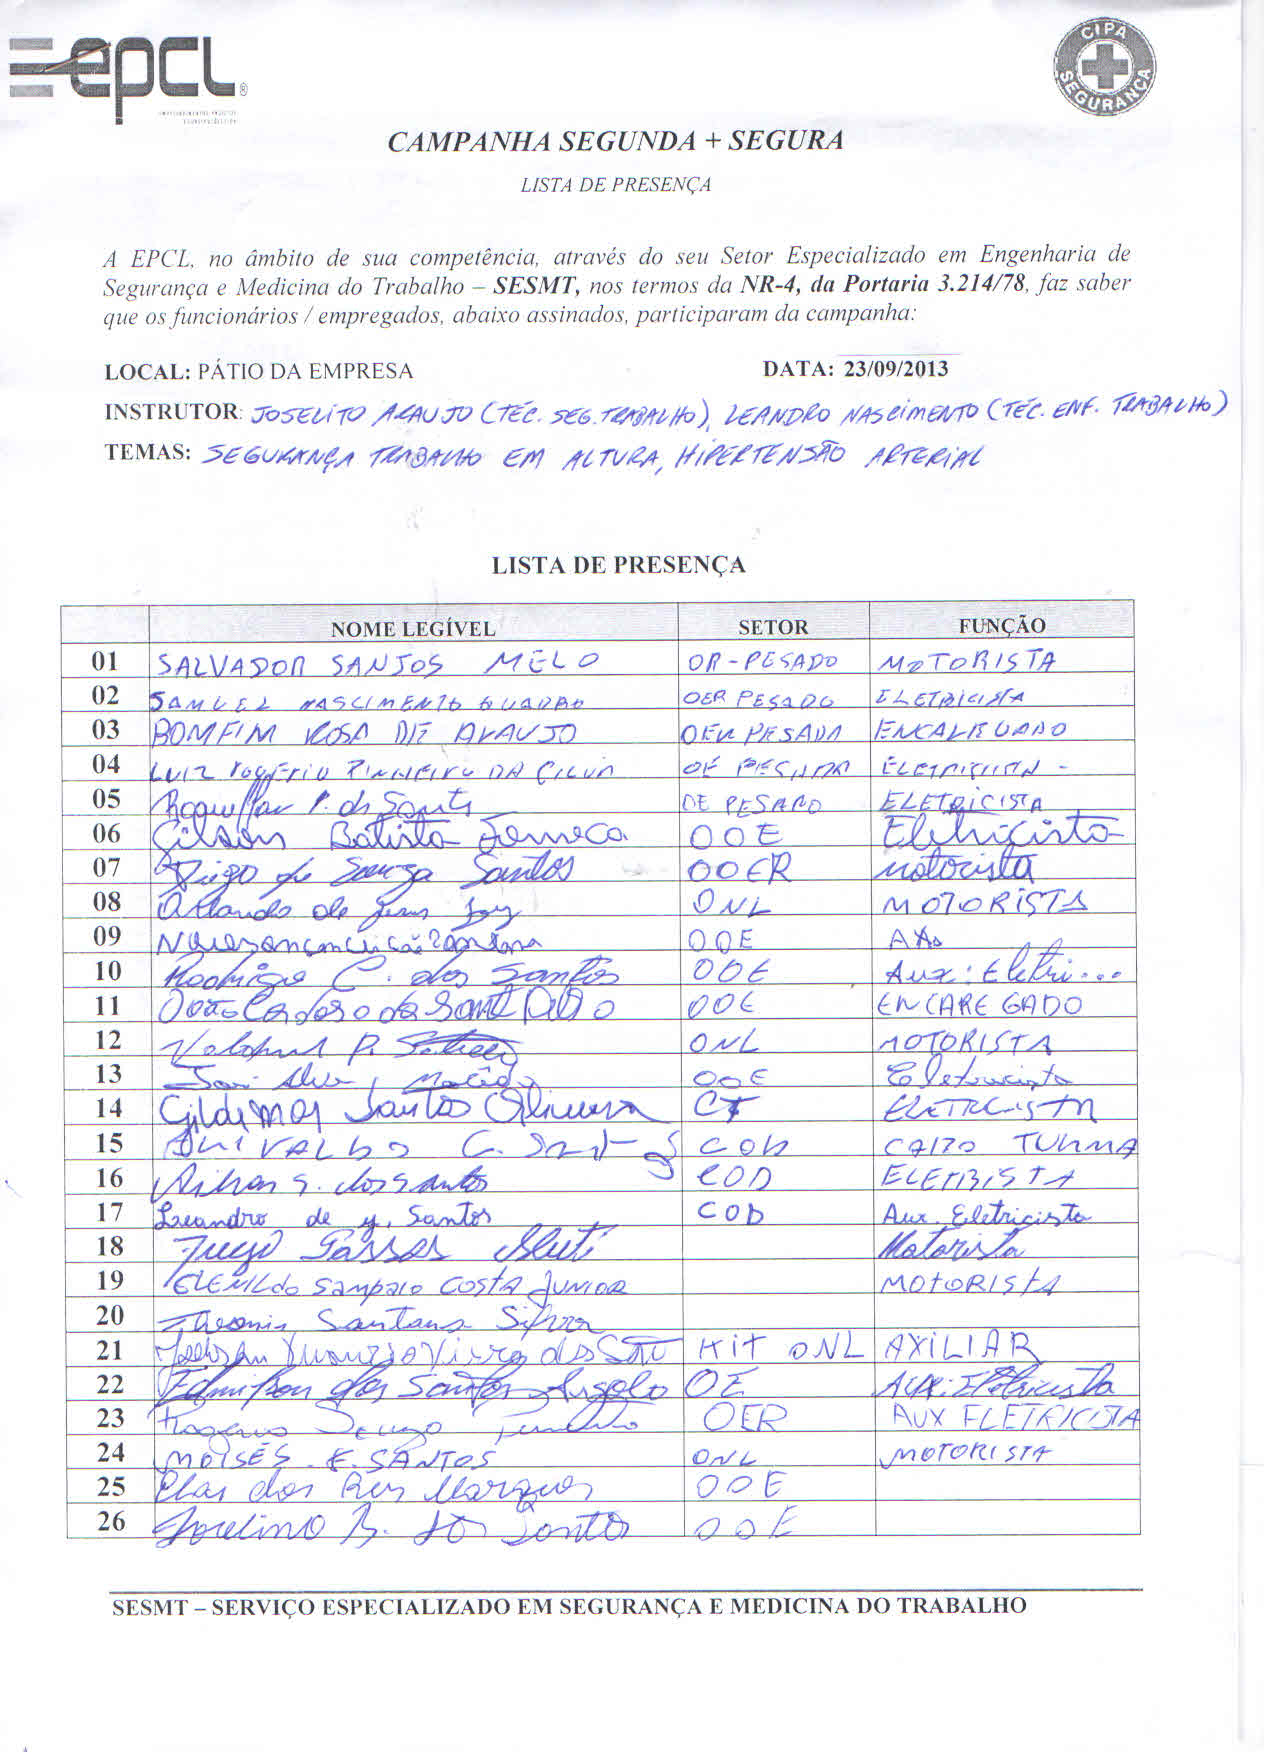 epcl®
CIPA
SEGURANÇA
CAMPANHA SEGUNDA + SEGURA
LISTA DE PRESENÇA
A EPCL, no âmbito de sua competência, através do seu Setor Especializado em Engenharia de
Segurança e Medicina do Trabalho – SESMT, nos termos da NR-4, da Portaria 3.214/78, faz saber
que os funcionários / empregados, abaixo assinados, participaram da campanha:
LOCAL: PÁTIO DA EMPRESA DATA: 23/09/2013
INSTRUTOR: JOSELITO ARAUJO (TÉC. SEG. TRABALHO), LEANDRO NASCIMENTO (TÉC. ENF. TRABALHO)
TEMAS: SEGURANÇA TRABALHO EM ALTURA, HIPERTENSÃO ARTERIAL
LISTA DE PRESENÇA
NOME LEGÍVEL SETOR FUNÇÃO
01 SALVADOR SANTOS MELO OR-PESADO MOTORISTA
02 SAMUEL NASCIMENTO OER PESADO ELETRICISTA
03 BOMFIM ROSA DE ARAUJO PESADA
04 LUIZ ROGÉRIO PINHEIRO DA
05 DE PESADO ELETRICISTA
06 Gilson Batista OOE Eletricista
07 Diego de Souza Santos OOER Motorista
08 Orlando de ONL MOTORISTA
09 OOE
10 Rodrigo C. dos Santos OOE Aux: Eletri...
11 João Cardoso OOE ENCAREGADO
12 P. ONL MOTORISTA
13 OOE Eletricista
14 Gildemar Santos Oliveira
15 COD TURMA
16 S. dos Santos COD
17 Leandro de J. Santos COD Aux. Eletricista
18 Motorista
19 Sampaio COSTA JUNIOR MOTORISTA
20 Santana Silva
21 KIT ONL AXILIAR
22 Edmilson dos Santos OE Aux: Eletricista
23 OER AUX ELETRICISTA
24 MOISÉS E. SANTOS ONL MOTORISTA
25 dos Reis Marques OOE
26 B. dos Santos OOE
SESMT – SERVIÇO ESPECIALIZADO EM SEGURANÇA E MEDICINA DO TRABALHO